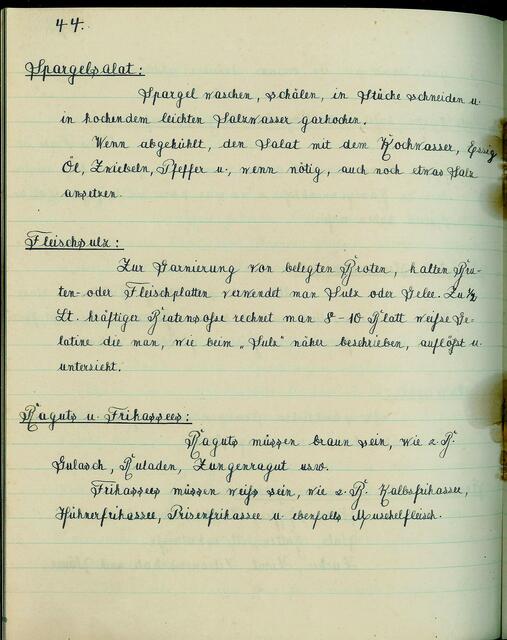 44.
Spargelsalat:
Spargel waschen, schälen, in Stücke schneiden u.
in kochendem leichten Salzwasser garkochen.
Wenn abgekühlt, den Salat mit dem Kochwasser, Essig
Öl, Zwiebeln, Pfeffer u, wenn nötig, auch noch etwas Salz
ansetzen.
Fleischsulz:
Zur Garnierung von belegten Broten, kalten Bra-
ten- oder Fleischplatten verwendet man Sulz oder Gelee. Zu ½
Lt. kräftiger Bratensoße rechnet man 8-10 Blatt weiße Ge-
latine die man, wie beim „Sulz" näher beschrieben, auflöst u.
unterzieht.
Raguts u. Frikassees:
Raguts müssen braun sein, wie z.B.
Gulasch, Ruladen, Zungenragut usw.
Frikassees müssen weiß sein, wie z.B. Kalbsfrikassee,
Hühnerfrikassee, Briesenfrikassee u. ebenfalls Muschelfleisch.